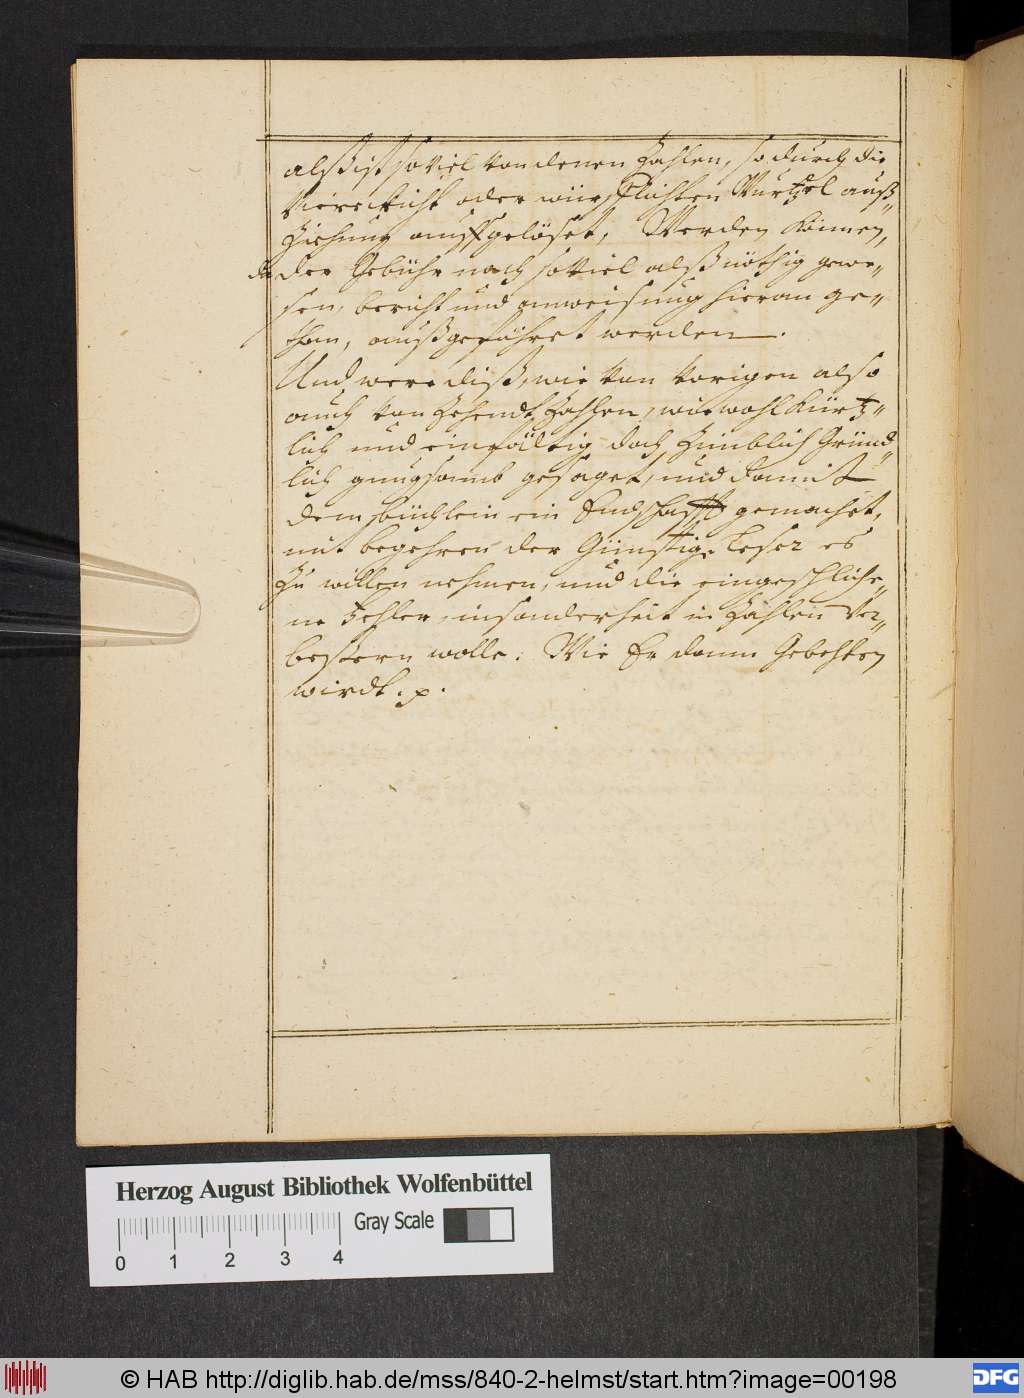 alß ist so viel von denen Zahlen, so durch die
Viereckicht oder würfflichten Wurtzel auß„
Ziehung auffgelöset, Werden können,
da der Gebühr nach so viel alß nöthig gewe„
sen, bericht und anweisung hieran ge„
than, außgeführet werden.
Und were diß, wie von vorigen also
auch von Zehendt Zahlen, wiewohl kürtz„
lich und einfältig doch Zimblich Gründ„
lich gnugsamb gesaget, und damit
dem büchlein ein Endschafft gemachet,
mit begehren der Günstige Leser es
Zu willen nehmen, und die eingeschliche„
ne Fehler, insonderheit in Zahlen ver„
bessern wolle. Wie Er dann Gebehten
wirdt. p.
Herzog August Bibliothek Wolfenbüttel
Gray Scale
0 1 2 3 4
© HAB http://diglib.hab.de/mss/840-2-helmst/start.htm?image=00198
DFG